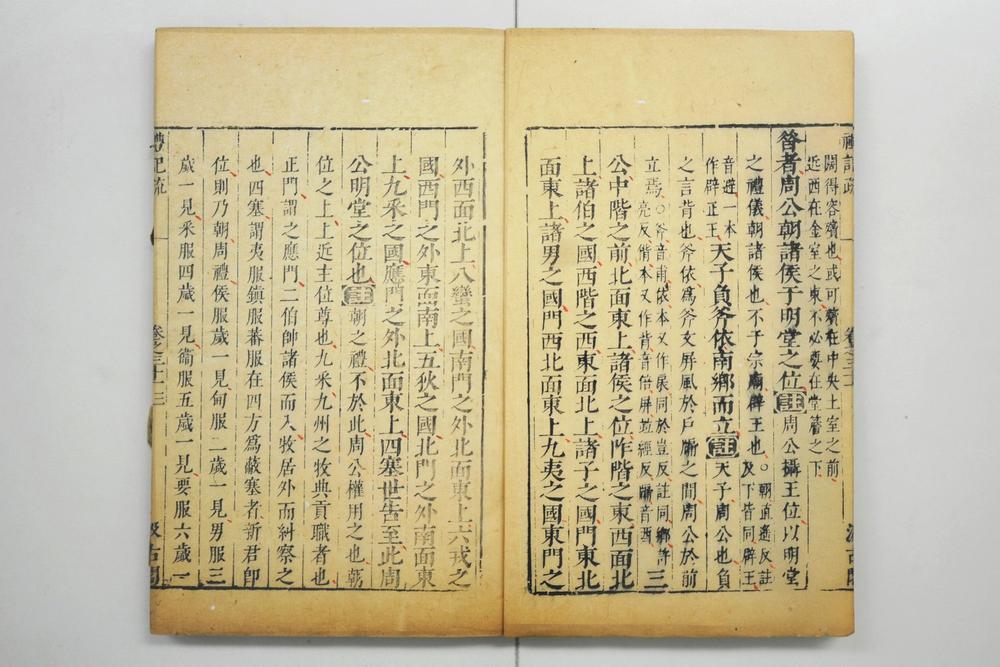 禮記疏 卷之三十一 汲古閣
闊得容殯也或可殯在中央土室之前
近西在金室之東不必要在堂簷之下
昔者周公朝諸侯于明堂之位註周公攝王位以明堂
之禮儀朝諸侯也不于宗廟辟王也○朝直遙反註
及下皆同辟王
音避一本
作辟正王天子負斧依南鄉而立註天子周公也負
之言背也斧依為斧文屏風於戶牖之間周公於前
立焉○斧音甫依本又作扆同於豈反註同鄉許
亮反偝本又作背音倍屏並經反牖音酉三
公中階之前北面東上諸侯之位阼階之東西面北
上諸伯之國西階之西東面北上諸子之國門東北
面東上諸男之國門西北面東上九夷之國東門之
外西面北上八蠻之國南門之外北面東上六戎之
國西門之外東面南上五狄之國北門之外南面東
上九采之國應門之外北面東上四塞世告至此周
公明堂之位也註朝之禮不於此周公權用之也朝
位之上上近主位尊也九采九州之牧典貢職者也
正門謂之應門二伯帥諸侯而入牧居外而糾察之
也四塞謂夷服鎮服蕃服在四方為蔽塞者新君即
位則乃朝周禮侯服歲一見甸服二歲一見男服三
歲一見采服四歲一見衛服五歲一見要服六歲一
禮記疏 卷之三十一 三 汲古閣